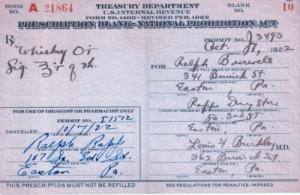 BOOK
No. A 21864
TREASURY DEPARTMENT
U.S. INTERNAL REVENUE
FORM No. 1403-REVISED FEB. 1922
BLANK
No. 10
PRESCRIPTION BLANK-NATIONAL PROHIBITION ACT
PERMIT No. J 3493
Oct 7, 1922
R
Whiskey
Sig
Ralph
341 St
Easton Pa.
FOR USE OF DRUGGIST OR PHARMACIST ONLY
PERMIT No. S 1572
CANCELLED:
10/7/22
Ralph Rapp
Easton Pa.
Rapps Drug Store
So. 3rd St
Easton Pa.
Louis
M.D.
362 St
Easton Pa.
THIS PRESCRIPTION MUST NOT BE REFILLED
SEE REGULATIONS FOR PENALTIES IMPOSED